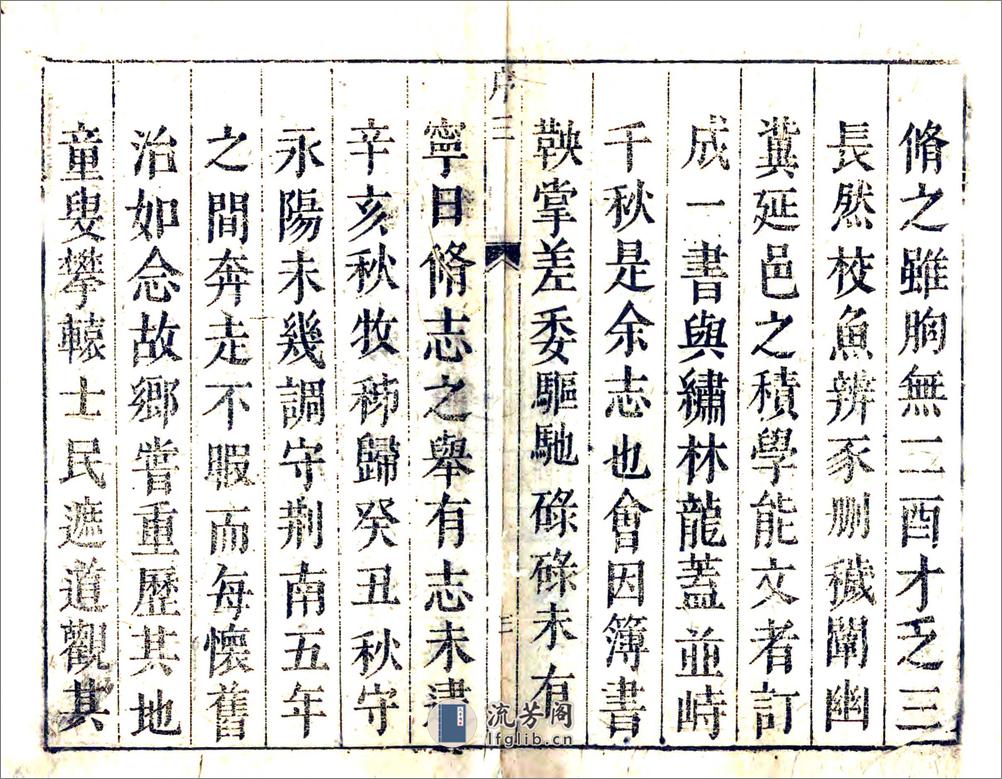 脩之雖胸無二酉才乏三
長然校魚辨豕刪穢闡幽
冀延邑之積學能文者訂
成一書與繡林龍蓋並峙
千秋是余志也會因簿書
鞅掌差委驅馳碌碌未有
序三
三
寧日脩志之舉有志未逮
辛亥秋牧秭歸癸丑秋守
永陽未幾調守荆南五年
之間奔走不暇而每懷舊
治如念故鄉嘗重歷其地
童叟攀轅士民遮道觀其
流芳阁
lfglib.cn